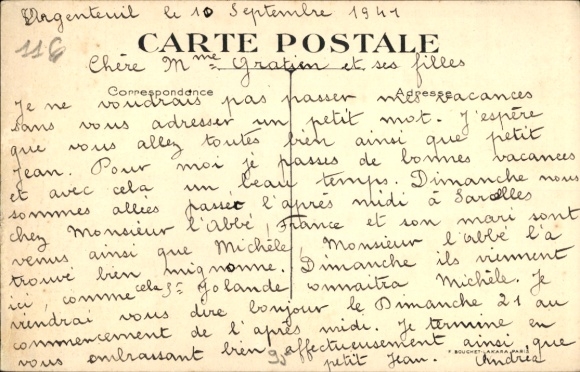 Argenteuil le 10 Septembre 1941
116
CARTE POSTALE
Chère Mme Gratien et ses filles
Correspondance
Adresse
Je ne voudrais pas passer mes vacances
sans vous adresser un petit mot. J'espère
que vous allez toutes bien ainsi que petit
Jean. Pour moi je passes de bonnes vacances
et avec cela un beau temps. Dimanche nous
sommes allées passer l'après midi à Sarcelles
chez Monsieur l'Abbé, France et son mari sont
venus ainsi que Michèle, Monsieur l'abbé l'à
trouvé bien mignonne. Dimanche ils viennent
ici, comme cela Jolande connaitra Michèle. Je
viendrai vous dire bonjour le Dimanche 21 au
commencement de l'après midi. Je termine en
vous embrassant bien affectueusement ainsi que
petit Jean. Andréa
BOUCHET-LAKARA PARIS